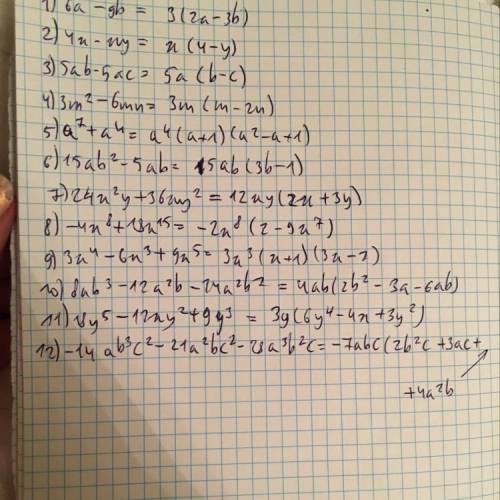 1) 6a - 9b = 3(2a-3b)
2) 4x - xy = x(4-y)
3) 5ab-5ac = 5a(b-c)
4) 3m²-6mn = 3m(m-2n)
5) a⁷+a⁴ = a⁴(a+1)(a²-a+1)
6) 15ab²-5ab = 5ab(3b-1)
7) 24x²y+36xy² = 12xy(2x+3y)
8) -4x⁸+18x¹⁵ = -2x⁸(2-9x⁷)
9) 3x⁴-6x³+9x⁵ = 3x³(x+1)(3x-2)
10) 8ab³-12a²b-24a²b² = 4ab(2b²-3a-6ab)
11) 18y⁵-12xy²+9y³ = 3y(6y⁴-4x+3y²)
12) -14ab³c²-21a²bc²-28a³b²c = -7abc(2b²c+3ac+
+4a²b